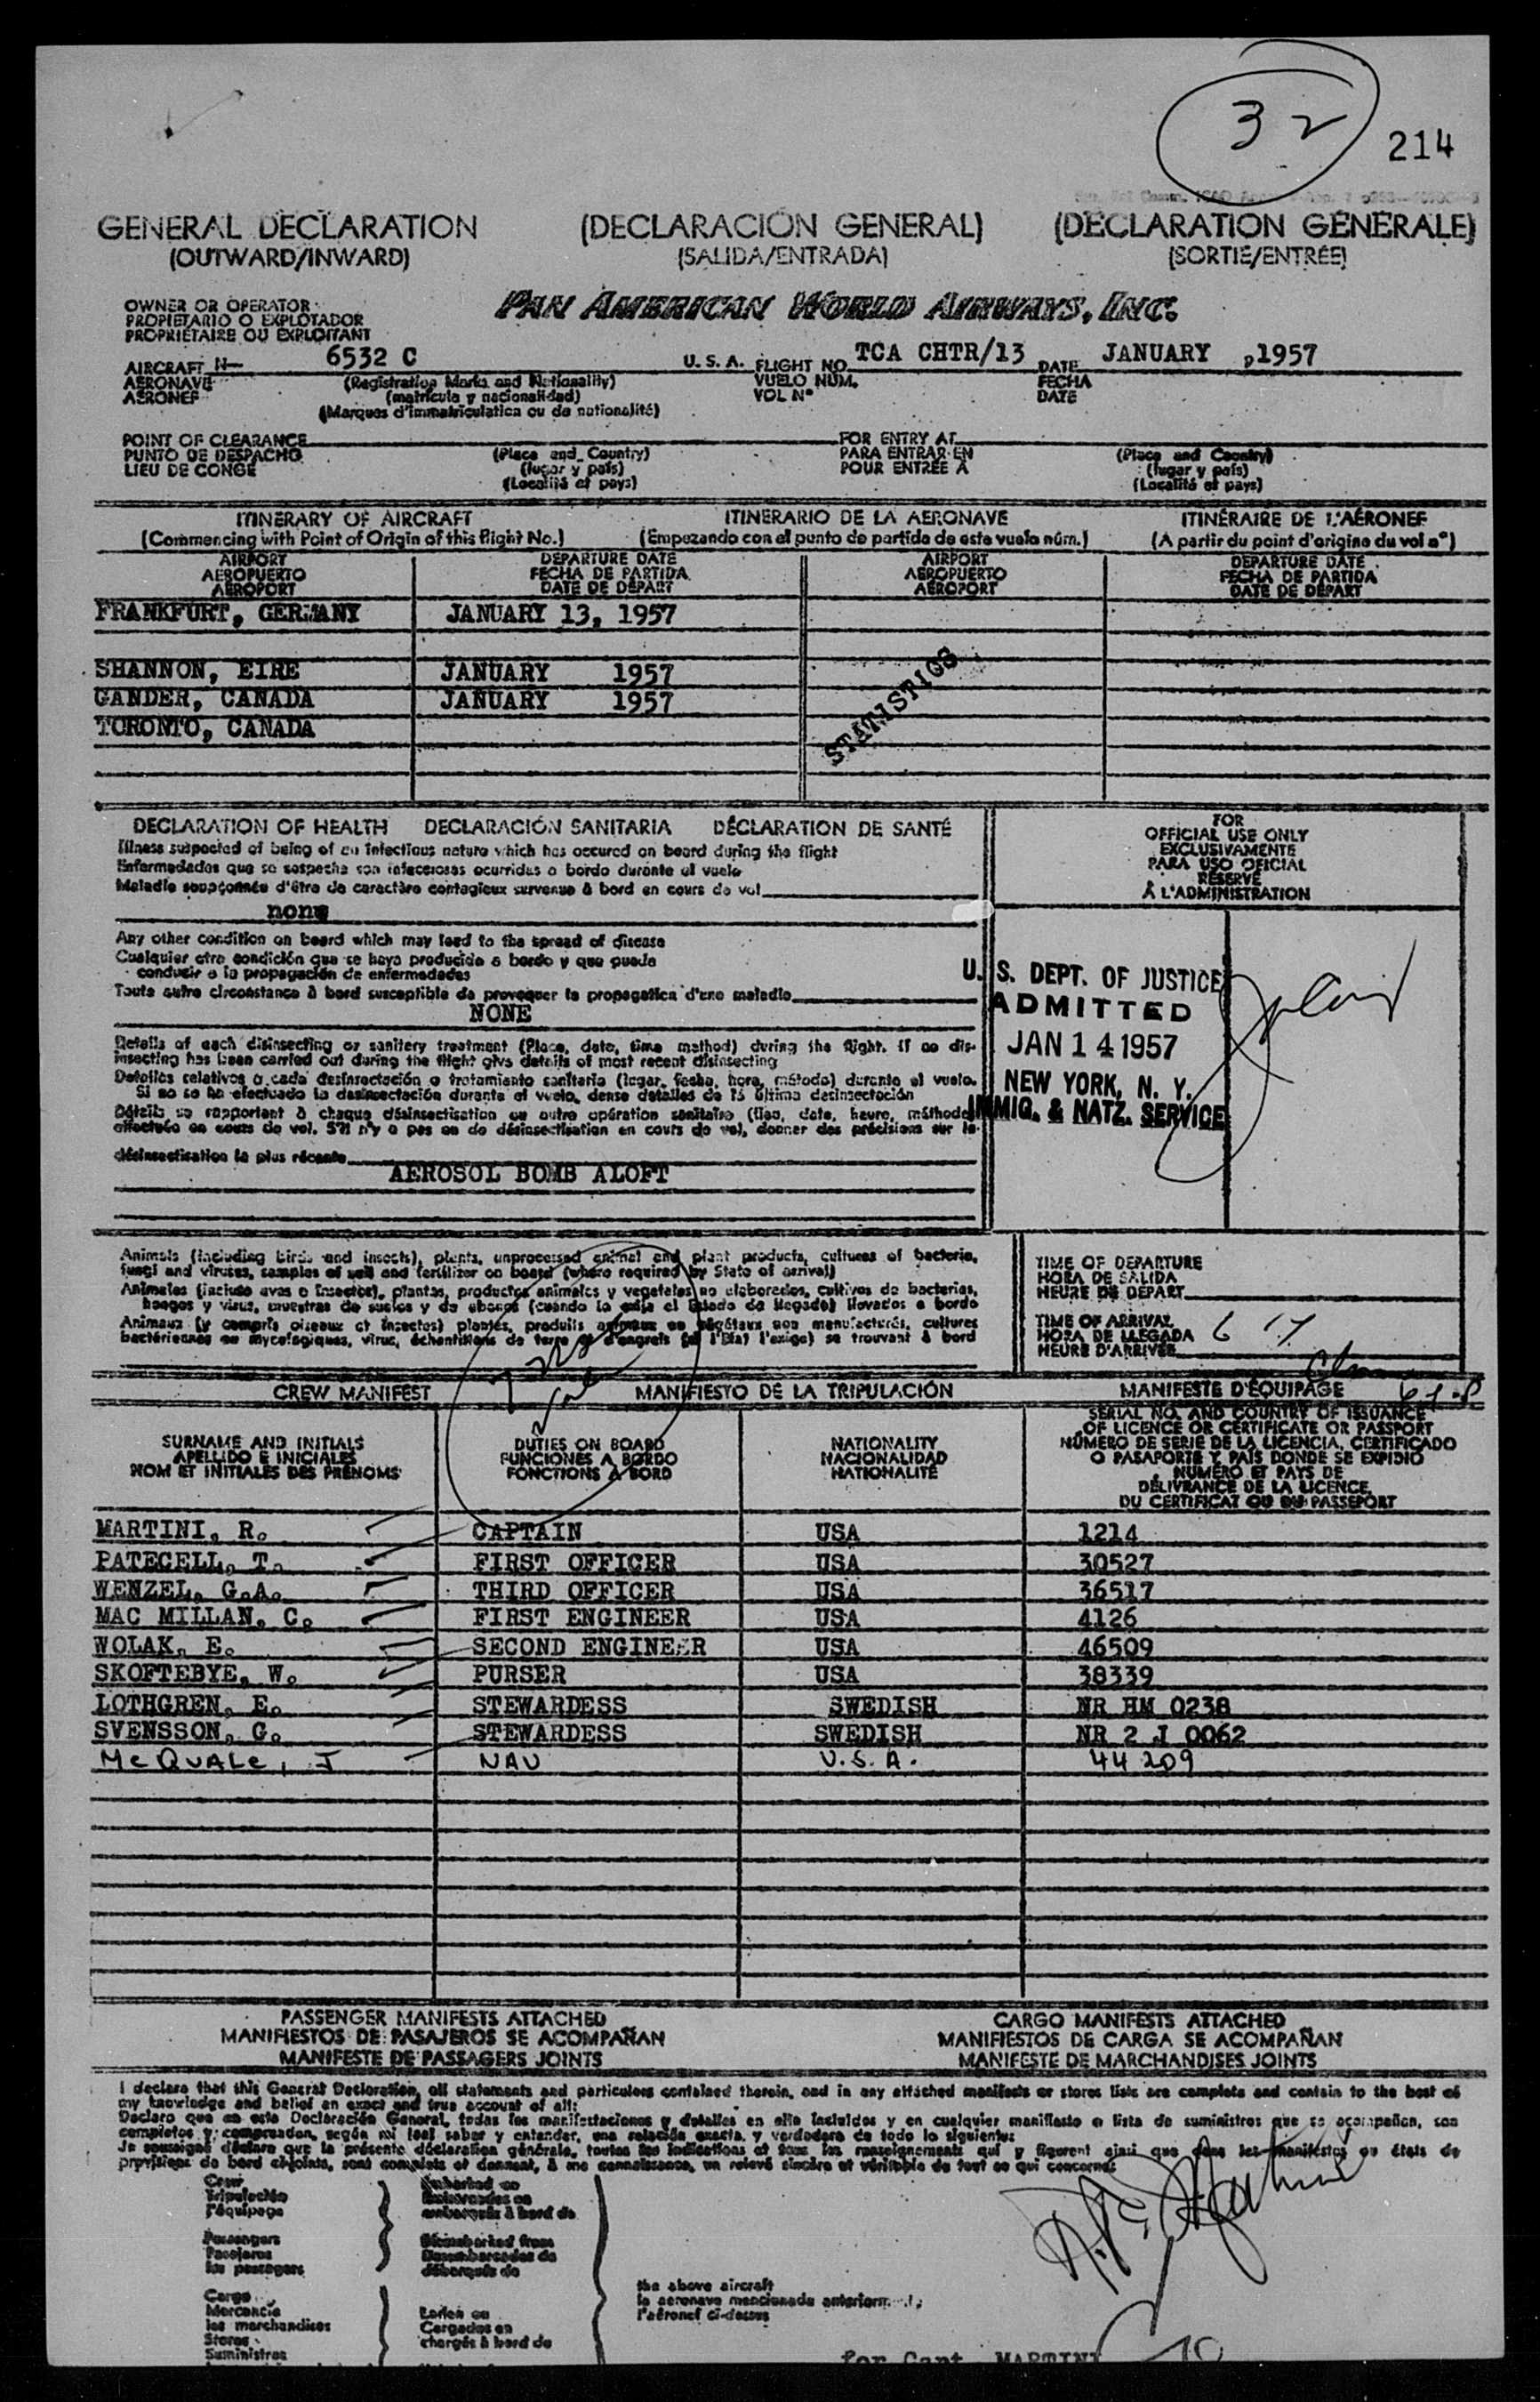 32
214
GENERAL DECLARATION (DECLARACIÓN GENERAL) (DÉCLARATION GÉNÉRALE)
(OUTWARD/INWARD) (SALIDA/ENTRADA) (SORTIE/ENTRÉE)
OWNER OR OPERATOR
PROPIETARIO O EXPLOTADOR
PROPRIÉTAIRE OU EXPLOITANT
PAN AMERICAN WORLD AIRWAYS, INC.
AIRCRAFT N— 6532 C U. S. A. FLIGHT NO. TCA CHTR/13 DATE JANUARY ,1957
AERONAVE (Registration Marks and Nationality) VUELO NÚM. FECHA
AÉRONEF (matrícula y nacionalidad) VOL N° DATE
(Marques d'immatriculation ou de nationalité)
POINT OF CLEARANCE FOR ENTRY AT
PUNTO DE DESPACHO (Place and Country) PARA ENTRAR EN (Place and Country)
LIEU DE CONGÉ (lugar y país) POUR ENTRÉE À (lugar y país)
(Localité et pays) (Localité et pays)
ITINERARY OF AIRCRAFT ITINERARIO DE LA AERONAVE ITINÉRAIRE DE L'AÉRONEF
(Commencing with Point of Origin of this flight No.) (Empezando con el punto de partida de este vuelo núm.) (A partir du point d'origine du vol n°)
AIRPORT DEPARTURE DATE AIRPORT DEPARTURE DATE
AEROPUERTO FECHA DE PARTIDA AEROPUERTO FECHA DE PARTIDA
AÉROPORT DATE DE DÉPART AÉROPORT DATE DE DÉPART
FRANKFURT, GERMANY JANUARY 13, 1957
SHANNON, EIRE JANUARY 1957
GANDER, CANADA JANUARY 1957
TORONTO, CANADA
STATISTICS
DECLARATION OF HEALTH DECLARACIÓN SANITARIA DÉCLARATION DE SANTÉ
Illness suspected of being of an infectious nature which has occured on board during the flight
Enfermedades que se sospecha son infecciosas ocurridas a bordo durante el vuelo
Maladie soupçonnée d'être de caractère contagieux survenue à bord en cours de vol
none
Any other condition on board which may lead to the spread of disease
Cualquier otra condición que se haya producido a bordo y que pueda
conducir a la propagación de enfermedades
Toute autre circonstance à bord susceptible de provoquer la propagation d'une maladie
NONE
Details of each disinsecting or sanitary treatment (Place, date, time method) during the flight. If no dis-
insecting has been carried out during the flight give details of most recent disinsecting
Detalles relativos a cada desinsectación o tratamiento sanitario (lugar, fecha, hora, método) durante el vuelo.
Si no se ha efectuado la desinsectación durante el vuelo, dense detalles de la última desinsectación
Détails se rapportant à chaque désinsectisation ou autre opération sanitaire (lieu, date, heure, méthode)
effectuée en cours de vol. S'il n'y a pas eu de désinsectisation en cours de vol, donner des précisions sur la
désinsectisation la plus récente
AEROSOL BOMB ALOFT
FOR
OFFICIAL USE ONLY
EXCLUSIVAMENTE
PARA USO OFICIAL
RÉSERVÉ
À L'ADMINISTRATION
U. S. DEPT. OF JUSTICE
ADMITTED
JAN 14 1957
NEW YORK, N. Y.
IMMIG. & NATZ. SERVICE
Animals (including birds and insects), plants, unprocessed animal and plant products, cultures of bacteria,
fungi and viruses, samples of soil and fertilizer on board (where required by State of arrival)
Animales (incluso aves o insectos), plantas, productos animales y vegetales no elaborados, cultivos de bacterias,
hongos y virus, muestras de suelos y de abonos (cuando lo exija el Estado de llegada) llevados a bordo
Animaux (y compris oiseaux et insectes) plantes, produits animaux ou végétaux non manufacturés, cultures
bactériennes ou mycologiques, virus, échantillons de terre et d'engrais (si l'État l'exige) se trouvant à bord
TIME OF DEPARTURE
HORA DE SALIDA
HEURE DE DÉPART
TIME OF ARRIVAL
HORA DE LLEGADA 6 17
HEURE D'ARRIVÉE
CREW MANIFEST MANIFIESTO DE LA TRIPULACIÓN MANIFESTE D'ÉQUIPAGE
SURNAME AND INITIALS
APELLIDO E INICIALES
NOM ET INITIALES DES PRÉNOMS
DUTIES ON BOARD
FUNCIONES A BORDO
FONCTIONS À BORD
NATIONALITY
NACIONALIDAD
NATIONALITÉ
SERIAL NO. AND COUNTRY OF ISSUANCE
OF LICENCE OR CERTIFICATE OR PASSPORT
NÚMERO DE SERIE DE LA LICENCIA, CERTIFICADO
O PASAPORTE Y PAÍS DONDE SE EXPIDIÓ
NUMÉRO ET PAYS DE
DÉLIVRANCE DE LA LICENCE,
DU CERTIFICAT OU DU PASSEPORT
MARTINI, R. CAPTAIN USA 1214
PATECELL, T. FIRST OFFICER USA 30527
WENZEL, G.A. THIRD OFFICER USA 36517
MAC MILLAN, C. FIRST ENGINEER USA 4126
WOLAK, E. SECOND ENGINEER USA 46509
SKOFTEBYE, W. PURSER USA 38339
LOTHGREN, E. STEWARDESS SWEDISH NR HM 0238
SVENSSON, G. STEWARDESS SWEDISH NR 2 J 0062
McQUALE, J NAV U.S.A. 44209
PASSENGER MANIFESTS ATTACHED CARGO MANIFESTS ATTACHED
MANIFIESTOS DE PASAJEROS SE ACOMPAÑAN MANIFIESTOS DE CARGA SE ACOMPAÑAN
MANIFESTE DE PASSAGERS JOINTS MANIFESTE DE MARCHANDISES JOINTS
I declare that this General Declaration, all statements and particulars contained therein, and in any attached manifests or stores lists are complete and contain to the best of
my knowledge and belief an exact and true account of all:
Declaro que en esta Declaración General, todas las manifestaciones y detalles en ella incluidos y en cualquier manifiesto o lista de suministros que se acompañan, son
completos y comprenden, según mi leal saber y entender, una relación exacta, y verdadera de todo lo siguiente:
Je soussigné déclare que la présente déclaration générale, toutes les indications et tous les renseignements qui y figurent ainsi que dans les manifestes ou états de
provisions de bord ci-joints, sont complets et donnent, à ma connaissance, un relevé sincère et véritable de tout ce qui concerne:
Crew
Tripulación
l'équipage
Embarked on
Embarcados en
embarqués à bord de
Passengers
Pasajeros
les passagers
Disembarked from
Desembarcados de
débarqués de
Cargo
Mercancía
les marchandises
Stores
Suministros
Laden on
Cargados en
chargés à bord de
the above aircraft
la aeronave mencionada anteriorm
l'aéronef ci-dessus
for Capt. MARTINI